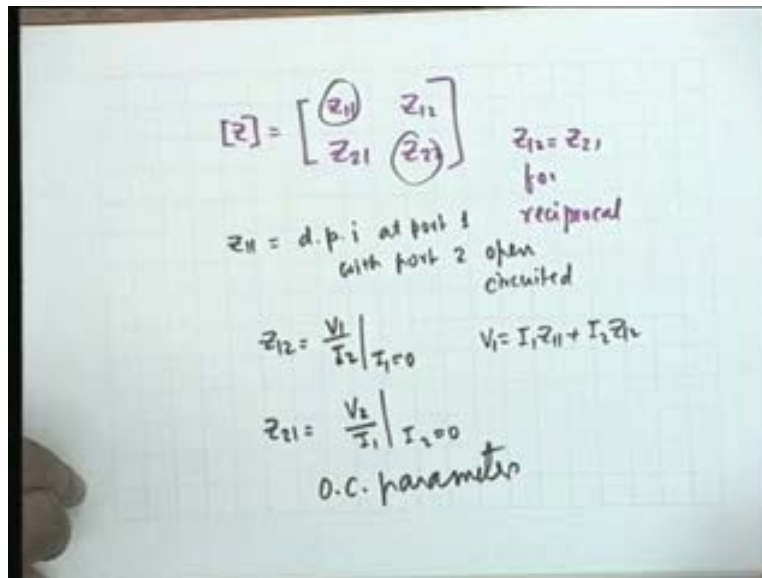 [Z] = [ Z11 Z12
Z21 Z22 ]
Z12 = Z21
for
reciprocal
Z11 = d.p.i at port 1
with port 2 open
circuited
Z12 = V1/I2 | I1=0
V1 = I1Z11 + I2Z12
Z21 = V2/I1 | I2=0
O.C. parameter